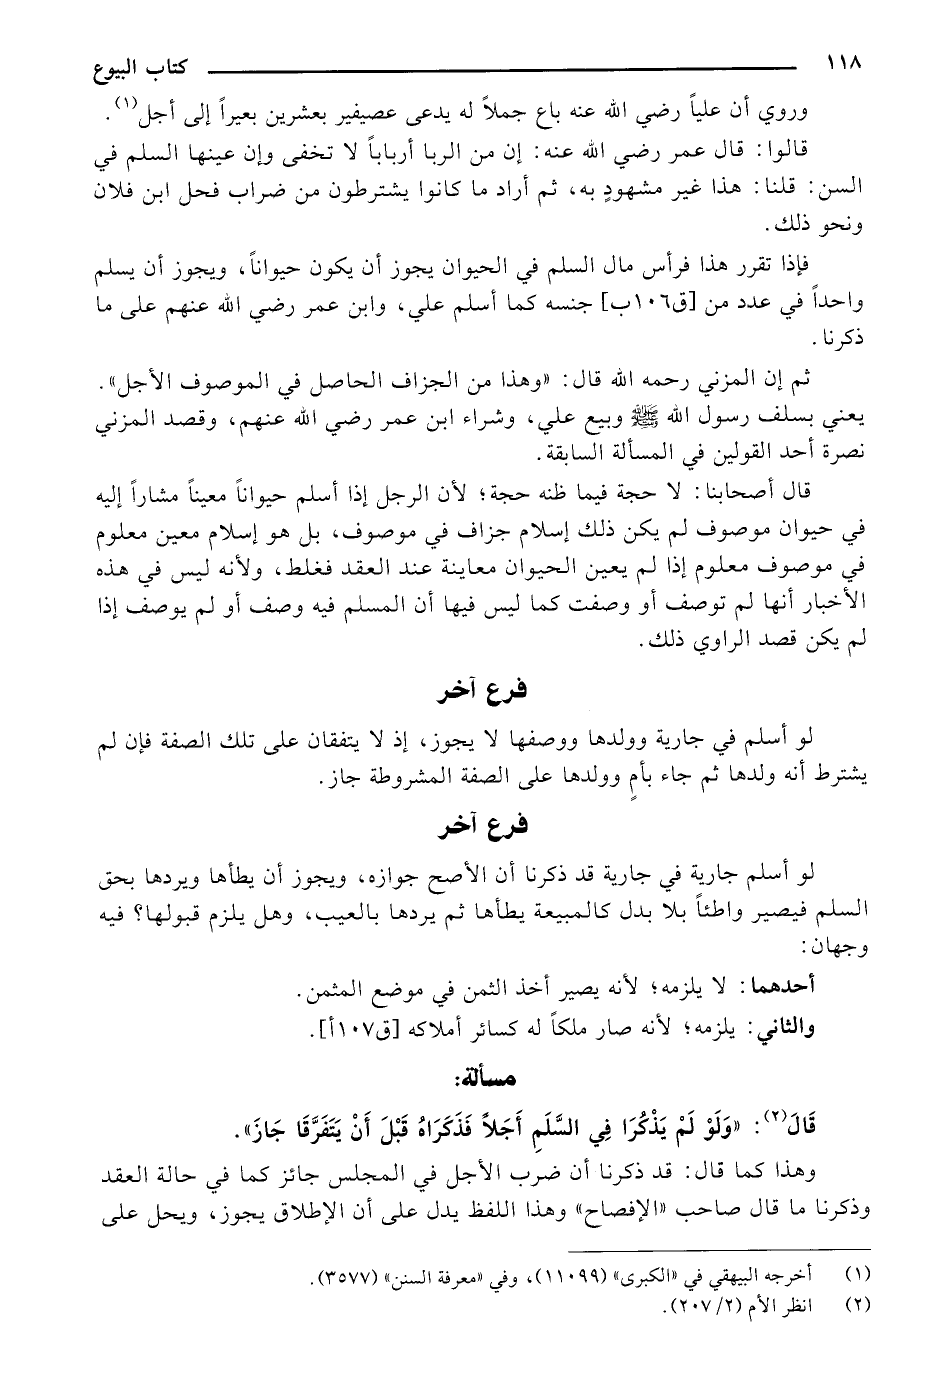 ١١٨ كتاب البيوع
وروي أن علياً رضي الله عنه باع جملاً له يدعى عصيفير بعشرين بعيراً إلى أجل(١).
قالوا: قال عمر رضي الله عنه: إن من الربا أرباباً لا تخفى وإن عينها السلم في
السن: قلنا: هذا غير مشهودٍ به، ثم أراد ما كانوا يشترطون من ضراب فحل ابن فلان
ونحو ذلك.
فإذا تقرر هذا فرأس مال السلم في الحيوان يجوز أن يكون حيواناً، ويجوز أن يسلم
واحداً في عدد من [ق١٠٦ب] جنسه كما أسلم علي، وابن عمر رضي الله عنهم على ما
ذكرنا.
ثم إن المزني رحمه الله قال: «وهذا من الجزاف الحاصل في الموصوف الأجل».
يعني بسلف رسول الله ﷺ وبيع علي، وشراء ابن عمر رضي الله عنهم، وقصد المزني
نصرة أحد القولين في المسألة السابقة.
قال أصحابنا: لا حجة فيما ظنه حجة؛ لأن الرجل إذا أسلم حيواناً معيناً مشاراً إليه
في حيوان موصوف لم يكن ذلك إسلام جزاف في موصوف، بل هو إسلام معين معلوم
في موصوف معلوم إذا لم يعين الحيوان معاينة عند العقد فغلط، ولأنه ليس في هذه
الأخبار أنها لم توصف أو وصفت كما ليس فيها أن المسلم فيه وصف أو لم يوصف إذا
لم يكن قصد الراوي ذلك.
فرع آخر
لو أسلم في جارية وولدها ووصفها لا يجوز، إذ لا يتفقان على تلك الصفة فإن لم
يشترط أنه ولدها ثم جاء بأمٍ وولدها على الصفة المشروطة جاز.
فرع آخر
لو أسلم جارية في جارية قد ذكرنا أن الأصح جوازه، ويجوز أن يطأها ويردها بحق
السلم فيصير واطئاً بلا بدل كالمبيعة يطأها ثم يردها بالعيب، وهل يلزم قبولها؟ فيه
وجهان:
أحدهما: لا يلزمه؛ لأنه يصير أخذ الثمن في موضع المثمن.
والثاني: يلزمه؛ لأنه صار ملكاً له كسائر أملاكه [ق١٠٧أ].
مسألة:
قَالَ(٢): «وَلَوْ لَمْ يَذْكُرَا فِي السَّلَمِ أَجَلاً فَذَكَرَاهُ قَبْلَ أَنْ يَتَفَرَّقَا جَازَ».
وهذا كما قال: قد ذكرنا أن ضرب الأجل في المجلس جائز كما في حالة العقد
وذكرنا ما قال صاحب «الإفصاح» وهذا اللفظ يدل على أن الإطلاق يجوز، ويحل على
(١) أخرجه البيهقي في «الكبرى» (١١٠٩٩)، وفي «معرفة السنن» (٣٥٧٧).
(٢) انظر الأم (٢٠٧/٢).